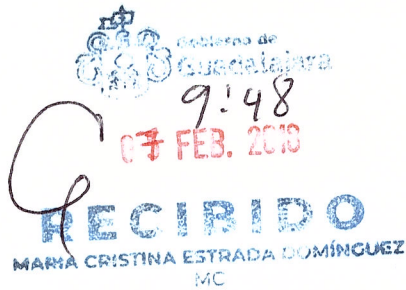 Gobierno de
Guadalajara
9:48
07 FEB. 2019
RECIBIDO
MARIA CRISTINA ESTRADA DOMÍNGUEZ
MC